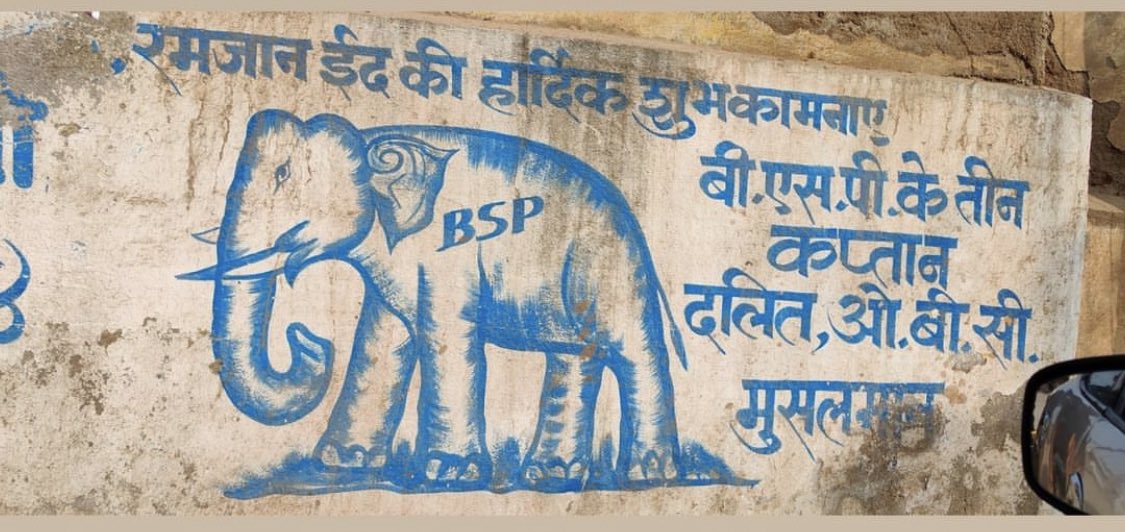 रमजान ईद की हार्दिक शुभकामनाएं
BSP
बी.एस.पी. के तीन
कप्तान
दलित, ओ.बी.सी.
मुसलमान